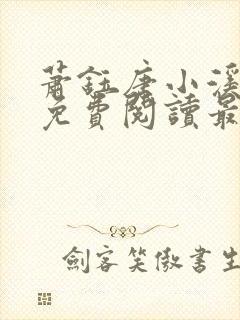 蕭鈺唐小溪
免費閱讀最
劍客笑傲書生